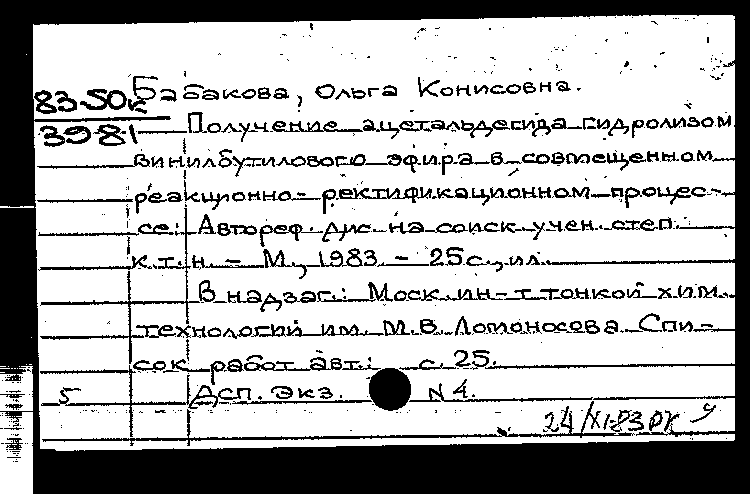 83-50к Бабакова, Ольга Конисовна.
3981 Получение ацетальдегида гидролизом
винилбутилового эфира в совмещенном
реакционно-ректификационном процес-
се: Автореф. дис. на соиск. учен. степ.
к.т.н. - М., 1983. - 25с., ил.
В надзаг.: Моск. ин-т тонкой хим.
технологии им. М.В. Ломоносова. Спи-
сок работ авт.: с. 25.
5 Дсп. Экз. N 4.
24/XI-83 РК